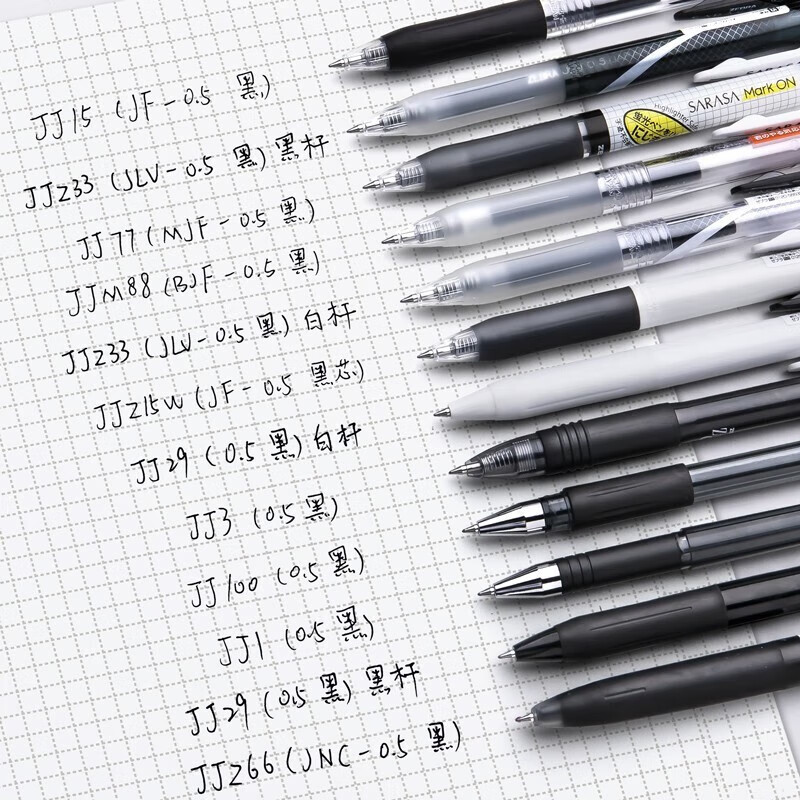 JJ15 (JF-0.5 黑)
JJZ33 (JLV-0.5 黑) 黑杆
JJ77 (MJF-0.5 黑)
JJM88 (BJF-0.5 黑)
JJZ33 (JLV-0.5 黑) 白杆
JJZ15W (JF-0.5 黑芯)
JJ29 (0.5 黑) 白杆
JJ3 (0.5 黑)
JJ100 (0.5 黑)
JJ1 (0.5 黑)
JJ29 (0.5 黑) 黑杆
JJZ66 (JNC-0.5 黑)
SARASA Mark ON
蛍光ペン